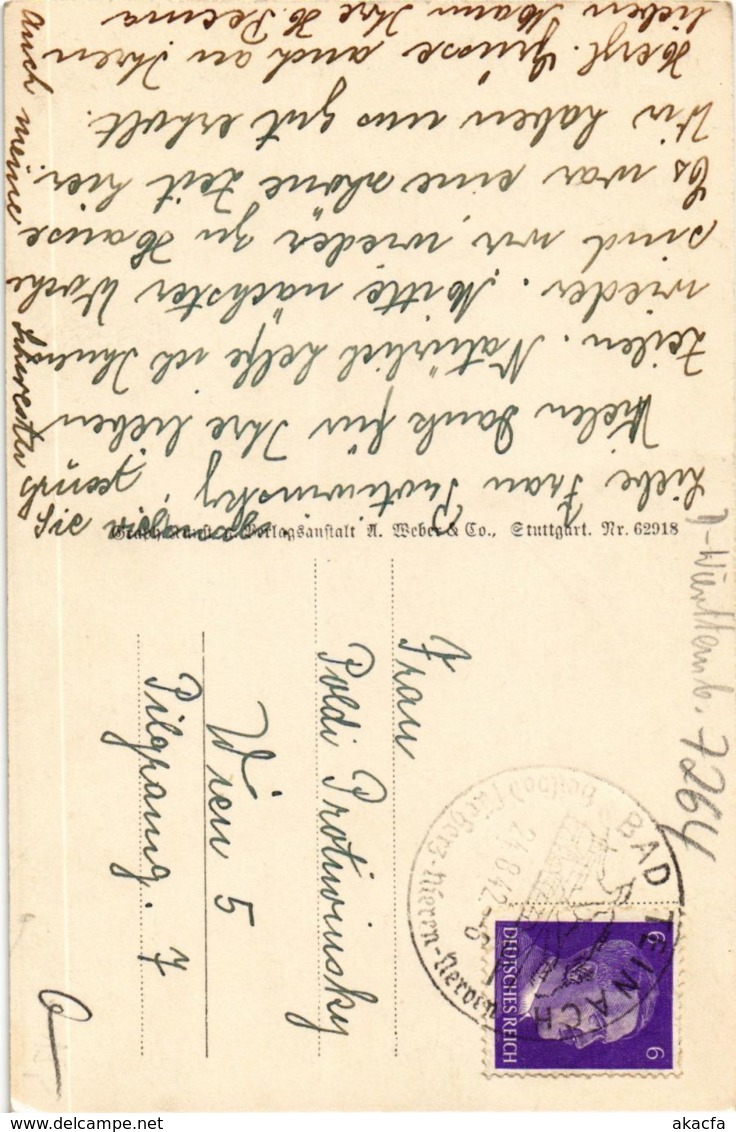 Liebe Frau Protiwinsky!
Vielen Dank für Ihre lieben
Zeilen. Natürlich helfe ich Ihnen
wieder. Mitte nächster Woche
sind wir wieder zu Hause
Es war eine schöne Zeit hier.
Wir haben uns gut erholt.
Herzl. Grüsse auch an Ihren
lieben Mann Ihre H.
Auch meine Schwester grüßt
Sie
Graph. Kunst- u. Verlagsanstalt A. Weber & Co., Stuttgart. Nr. 62918
Frau
Poldi Protiwinsky
Wien 5
Pilgramg. 7
BAD TEINACH
24.8.42
Heilbad für Herz-Nieren-Nerven
6 DEUTSCHES REICH 6
D-Württemb. 7264
akacfa
delcampe.net